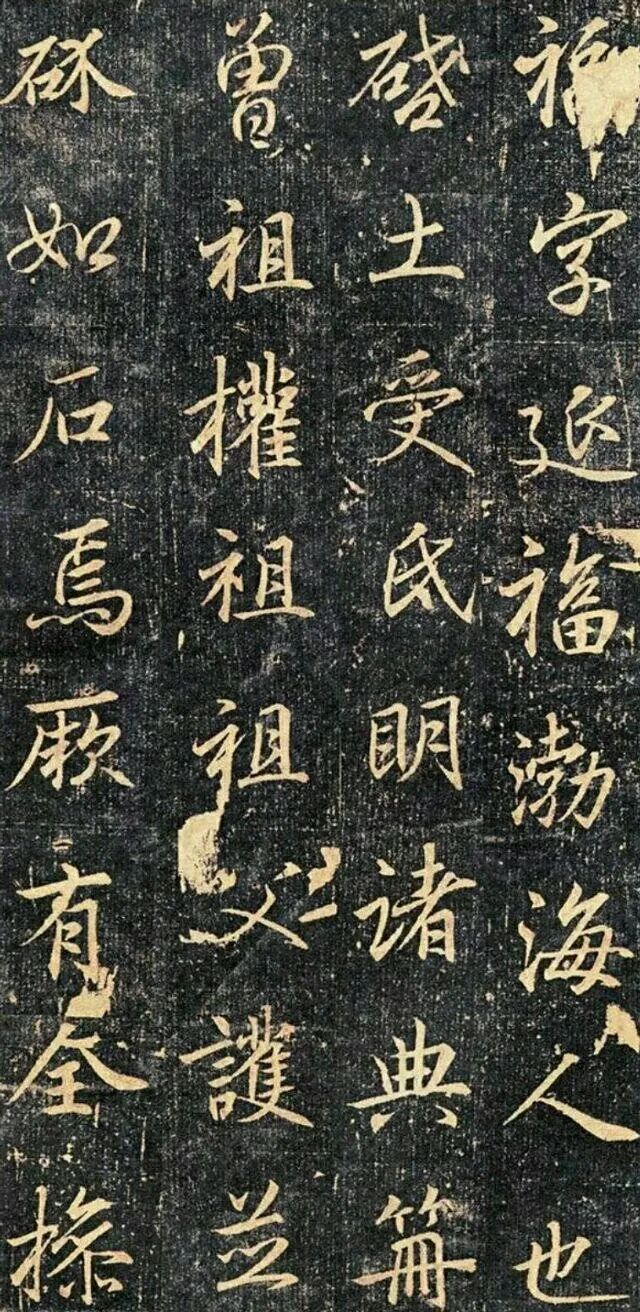 福字延福渤海人也
啓土受氏眀諸典笧
曾祖權祖祖父護並
如石焉厥有全操